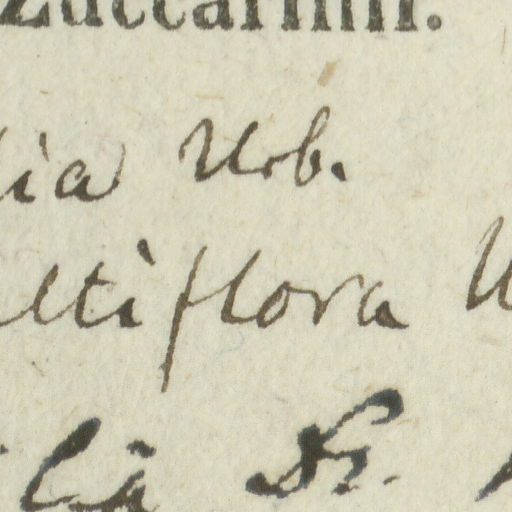 Zuccarinii.
lia Urb.
ltiflora U
lia Fr.